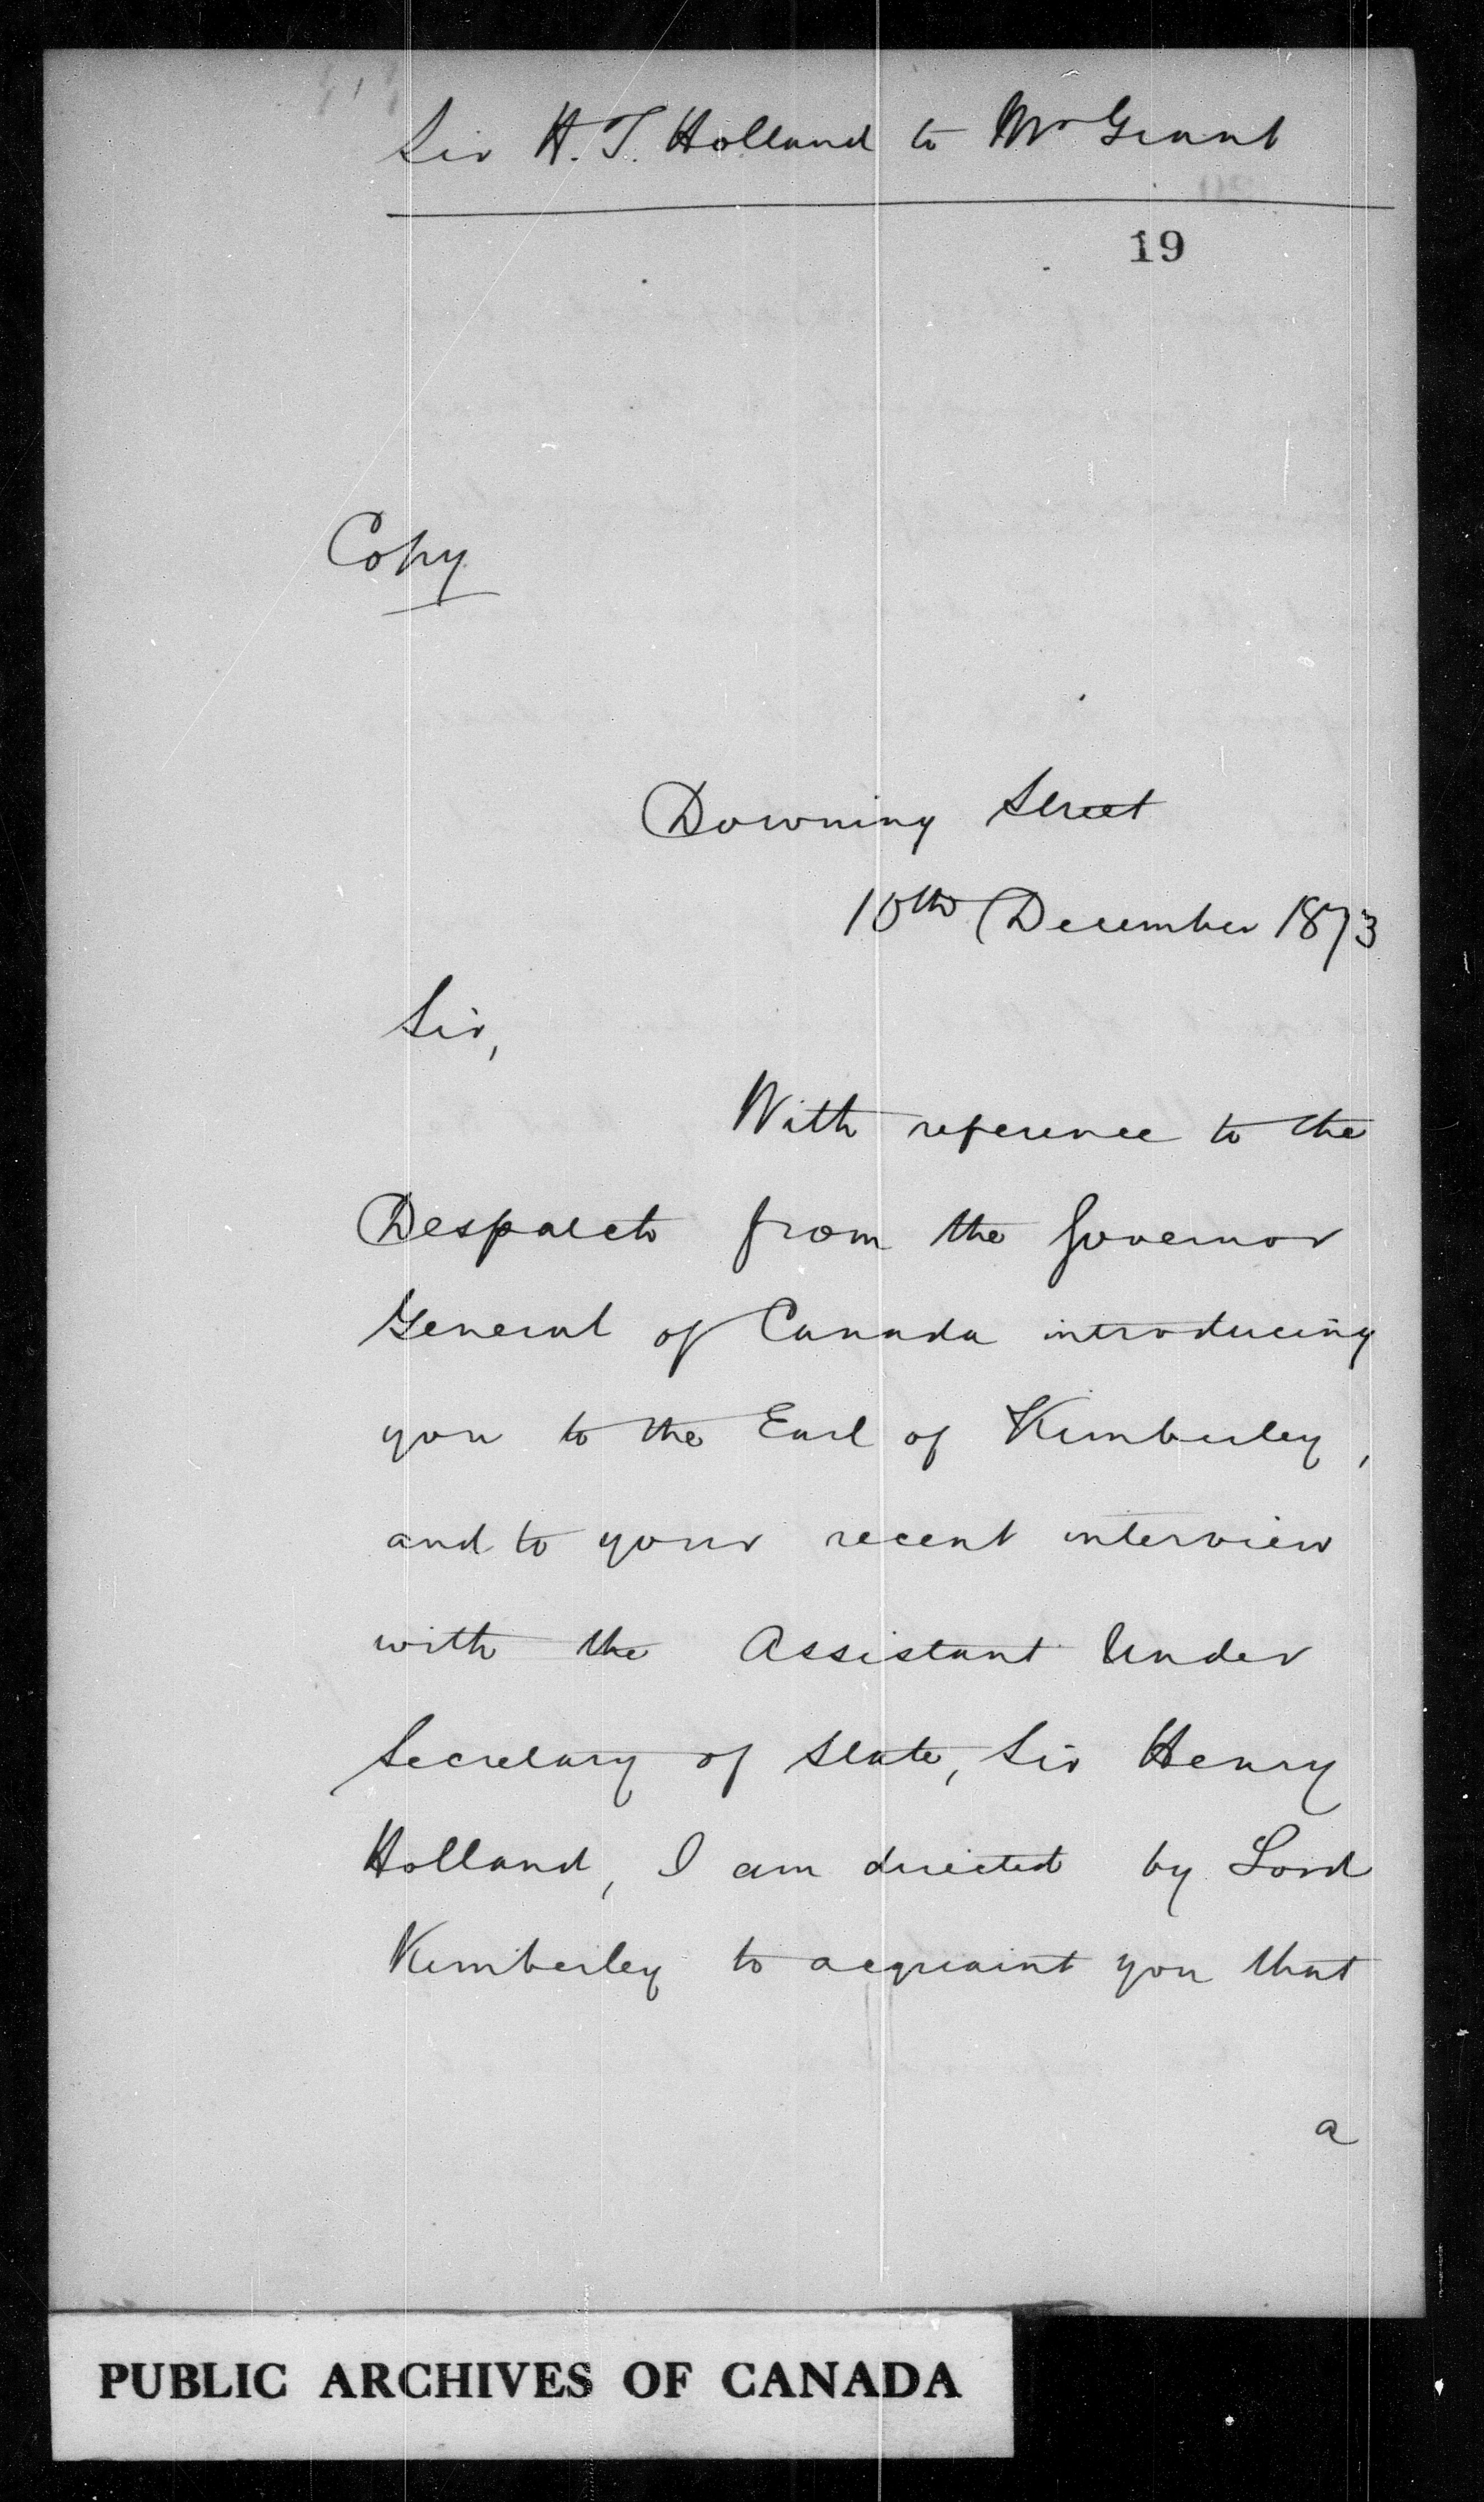 Sir H. T. Holland to Mr Grant
19
Copy
Downing Street
10th December 1873
Sir,
With reference to the
Despatch from the Governor
General of Canada introducing
you to the Earl of Kimberley,
and to your recent interview
with the Assistant Under
Secretary of State, Sir Henry
Holland, I am directed by Lord
Kimberley to acquaint you that
a
PUBLIC ARCHIVES OF CANADA